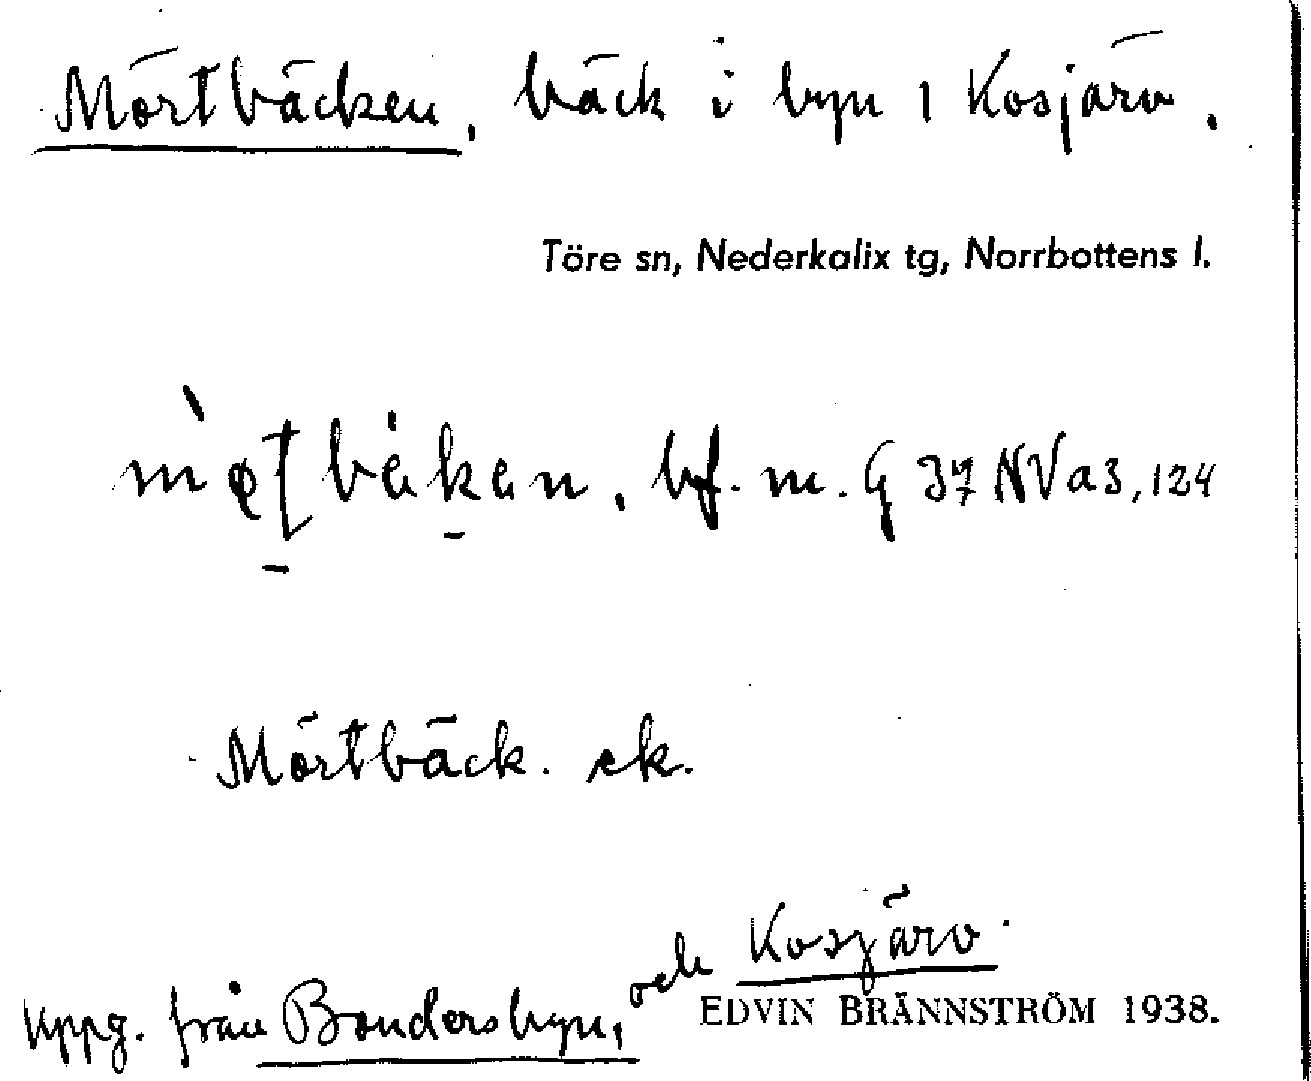 Mörtbäcken, bäck i byn 1 Kosjärv.
Töre sn, Nederkalix tg, Norrbottens l.
bf. m. G 37 NV a 3, 124
Mörtbäck. ek.
uppg. från Bondersbyn, och Kosjärv.
EDVIN BRÄNNSTRÖM 1938.